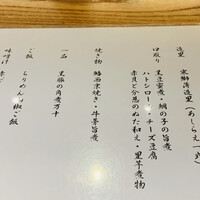 造里
寒鰤薄造里(あしらえ一式)
口取り
黒豆蜜煮・鯛の子の旨煮
ハトシロール・チーズ豆腐
赤貝と分葱のぬた和え・里芋煮物
焼き物
鰆西京焼き・牛蒡旨煮
一品
黒豚の角煮万十
ご飯
ちりめん山椒ご飯
味噌汁
赤だ